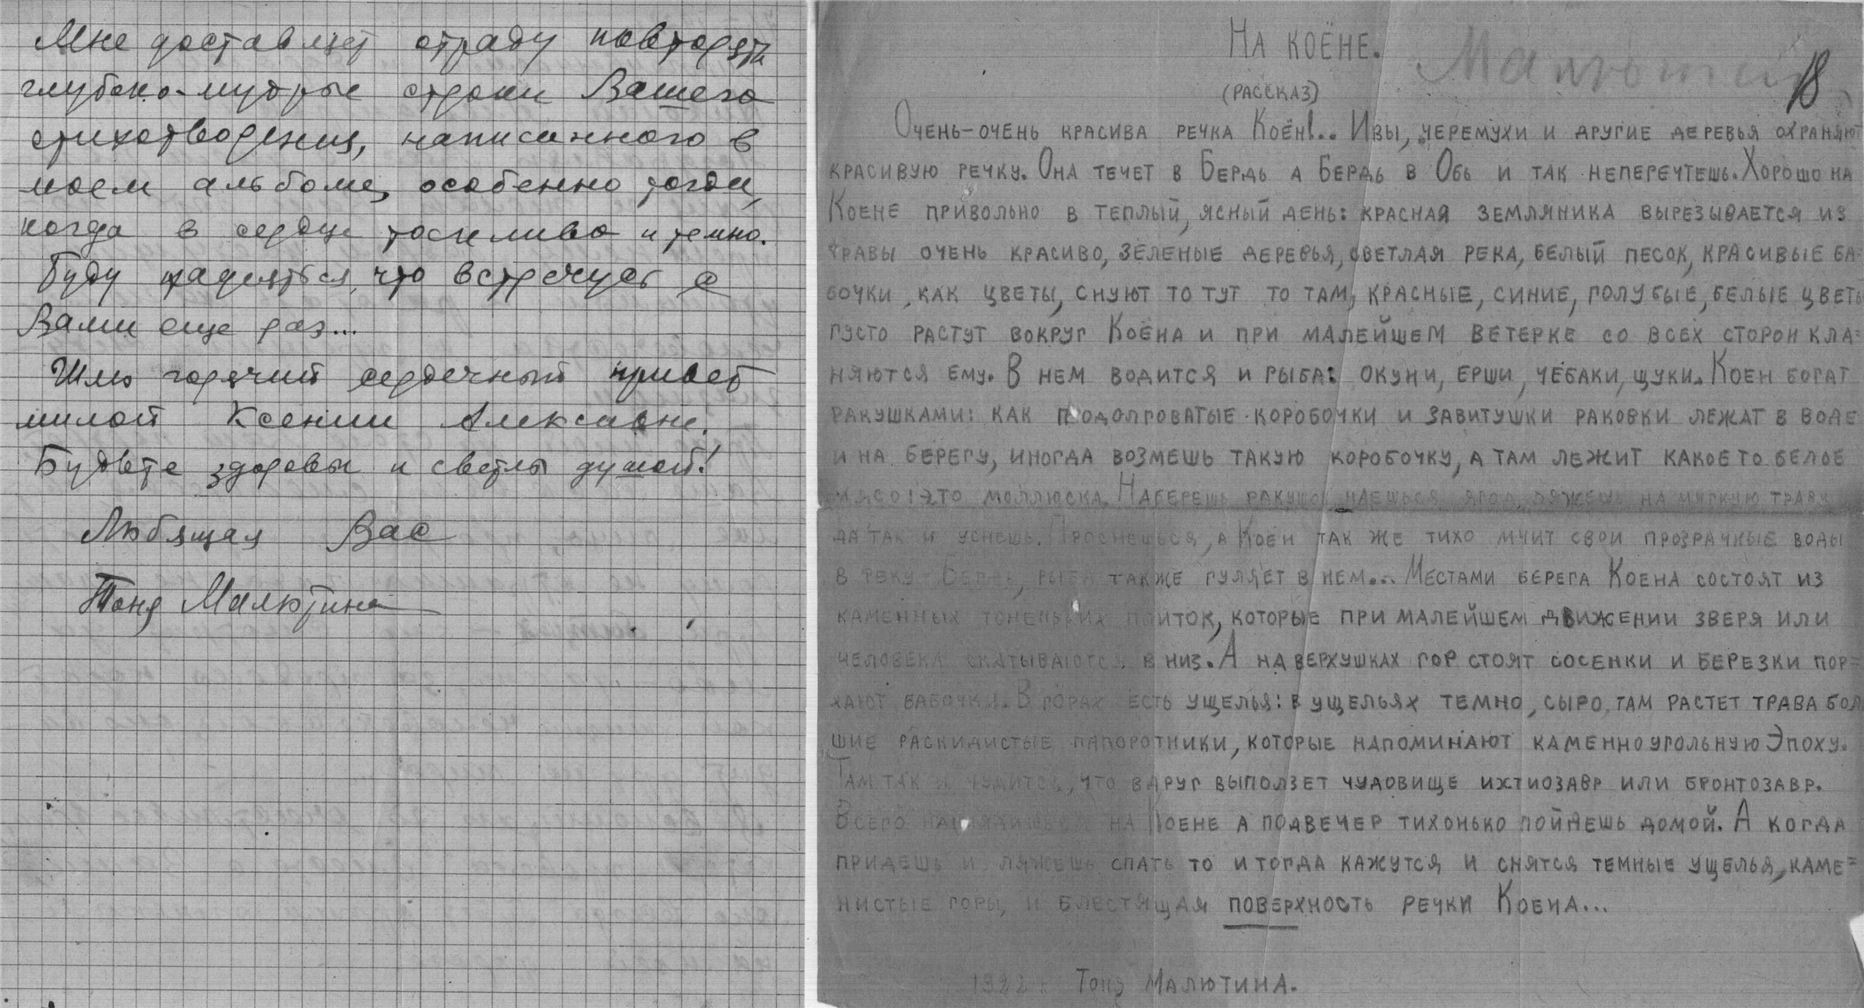 Мне доставляет отраду повторять
глубоко-мудрые строки Вашего
стихотворения, написанного в
моем альбоме, особенно тогда,
когда в сердце тоскливо и темно.
Буду надеяться, что встречусь с
Вами еще раз...
Шлю горячий сердечный привет
милой Ксении Алексавне.
Будьте здоровы и светлы душой!
Любящая Вас
Тоня Малютина
На Коёне.
Малютин
18
(рассказ)
Очень-очень красива речка Коён!.. Ивы, черемухи и другие деревья охраняют
красивую речку. Она течет в Бердь а Бердь в Обь и так неперечтешь. Хорошо на
Коене привольно в теплый, ясный день: красная земляника вырезывается из
травы очень красиво, зеленые деревья, светлая река, белый песок, красивые ба-
бочки, как цветы, снуют то тут то там, красные, синие, голубые, белые цветы
густо растут вокруг Коёна и при малейшем ветерке со всех сторон кла=
няются ему. В нем водится и рыба: окуни, ерши, чебаки, щуки. Коен богат
ракушками: как продолговатые коробочки и завитушки раковки лежат в воде
и на берегу, иногда возмешь такую коробочку, а там лежит какое то белое
мясо: это моллюска. Наберешь ракушок наешься ягод, ляжешь на мягкую траву
да так и уснешь. Проснешься, а Коен так же тихо мчит свои прозрачные воды
в реку Бердь, рыба также гуляет в нем... Местами берега Коена состоят из
каменных тоненьких плиток, которые при малейшем движении зверя или
человека скатываются в низ. А на верхушках гор стоят сосенки и березки пор=
хают бабочки. В горах есть ущелья: в ущельях темно, сыро, там растет трава бол
шие раскидистые папоротники, которые напоминают каменноугольную Эпоху.
Там так и чудится, что вдруг выползет чудовище ихтиозавр или бронтозавр.
Всего на Коене а подвечер тихонько пойдешь домой. А когда
придешь и ляжешь спать то и тогда кажутся и снятся темные ущелья, каме=
нистые горы, и блестящая поверхность речки Коена...
1922 г Тоня Малютина.